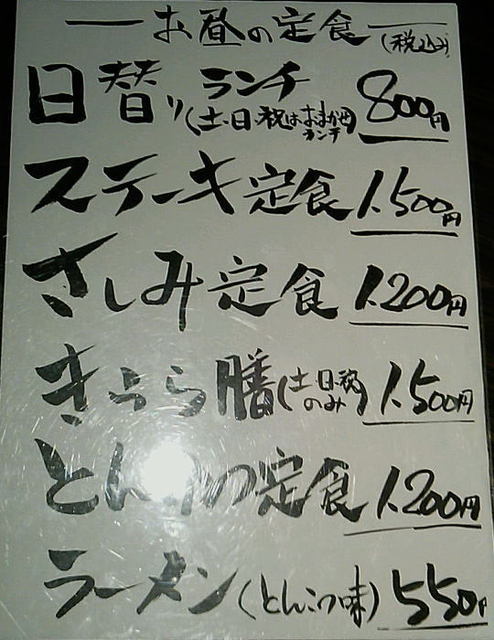 お昼の定食(税込)
日替りランチ 800円
(土・日・祝はおまかせランチ)
ステーキ定食 1.500円
さしみ定食 1.200円
きよら膳(土・日・祝のみ) 1.500円
とんかつ定食 1.200円
ラーメン(とんこつ味) 550円